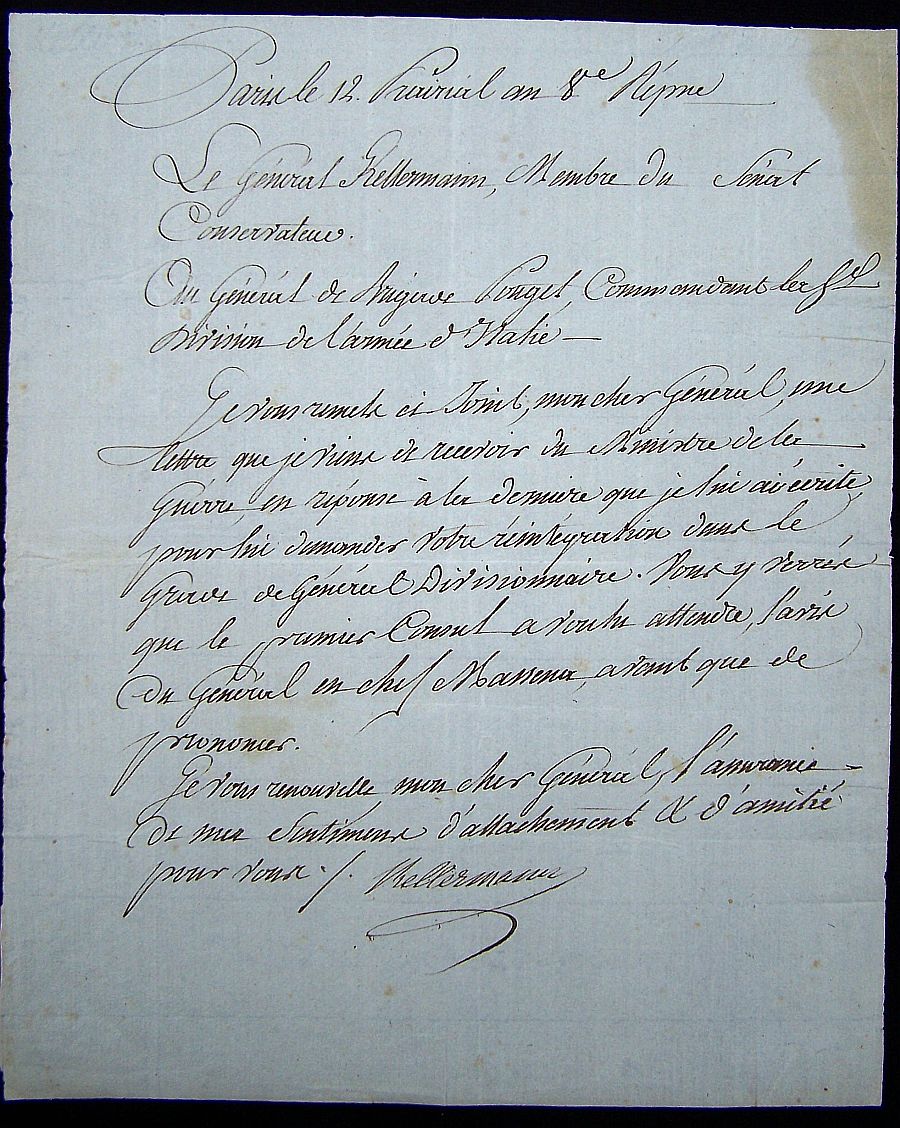 Paris le 12. Prairial an 8e Répne
Le Général Kellermann, Membre du Sénat
Conservateur.
Au Général de Brigade Pouget, Commandant la
Division de l'armée d'Italie —
Je vous remets ci Joint, mon cher Général, une
lettre que je viens de recevoir du Ministre de la
Guerre, en réponse à la derniere que je lui ai écrite,
pour lui demander votre réintégration dans le
Grade de Général Divisionnaire. Vous y verrés
que le premier Consul a voulu attendre, l'avis
du Général en chef Massena, avant que de
prononcer.
Je vous renouvelle mon cher Général, l'assurance
de mes Sentimens d'attachement & d'amitié
pour vous ./. Kellermann